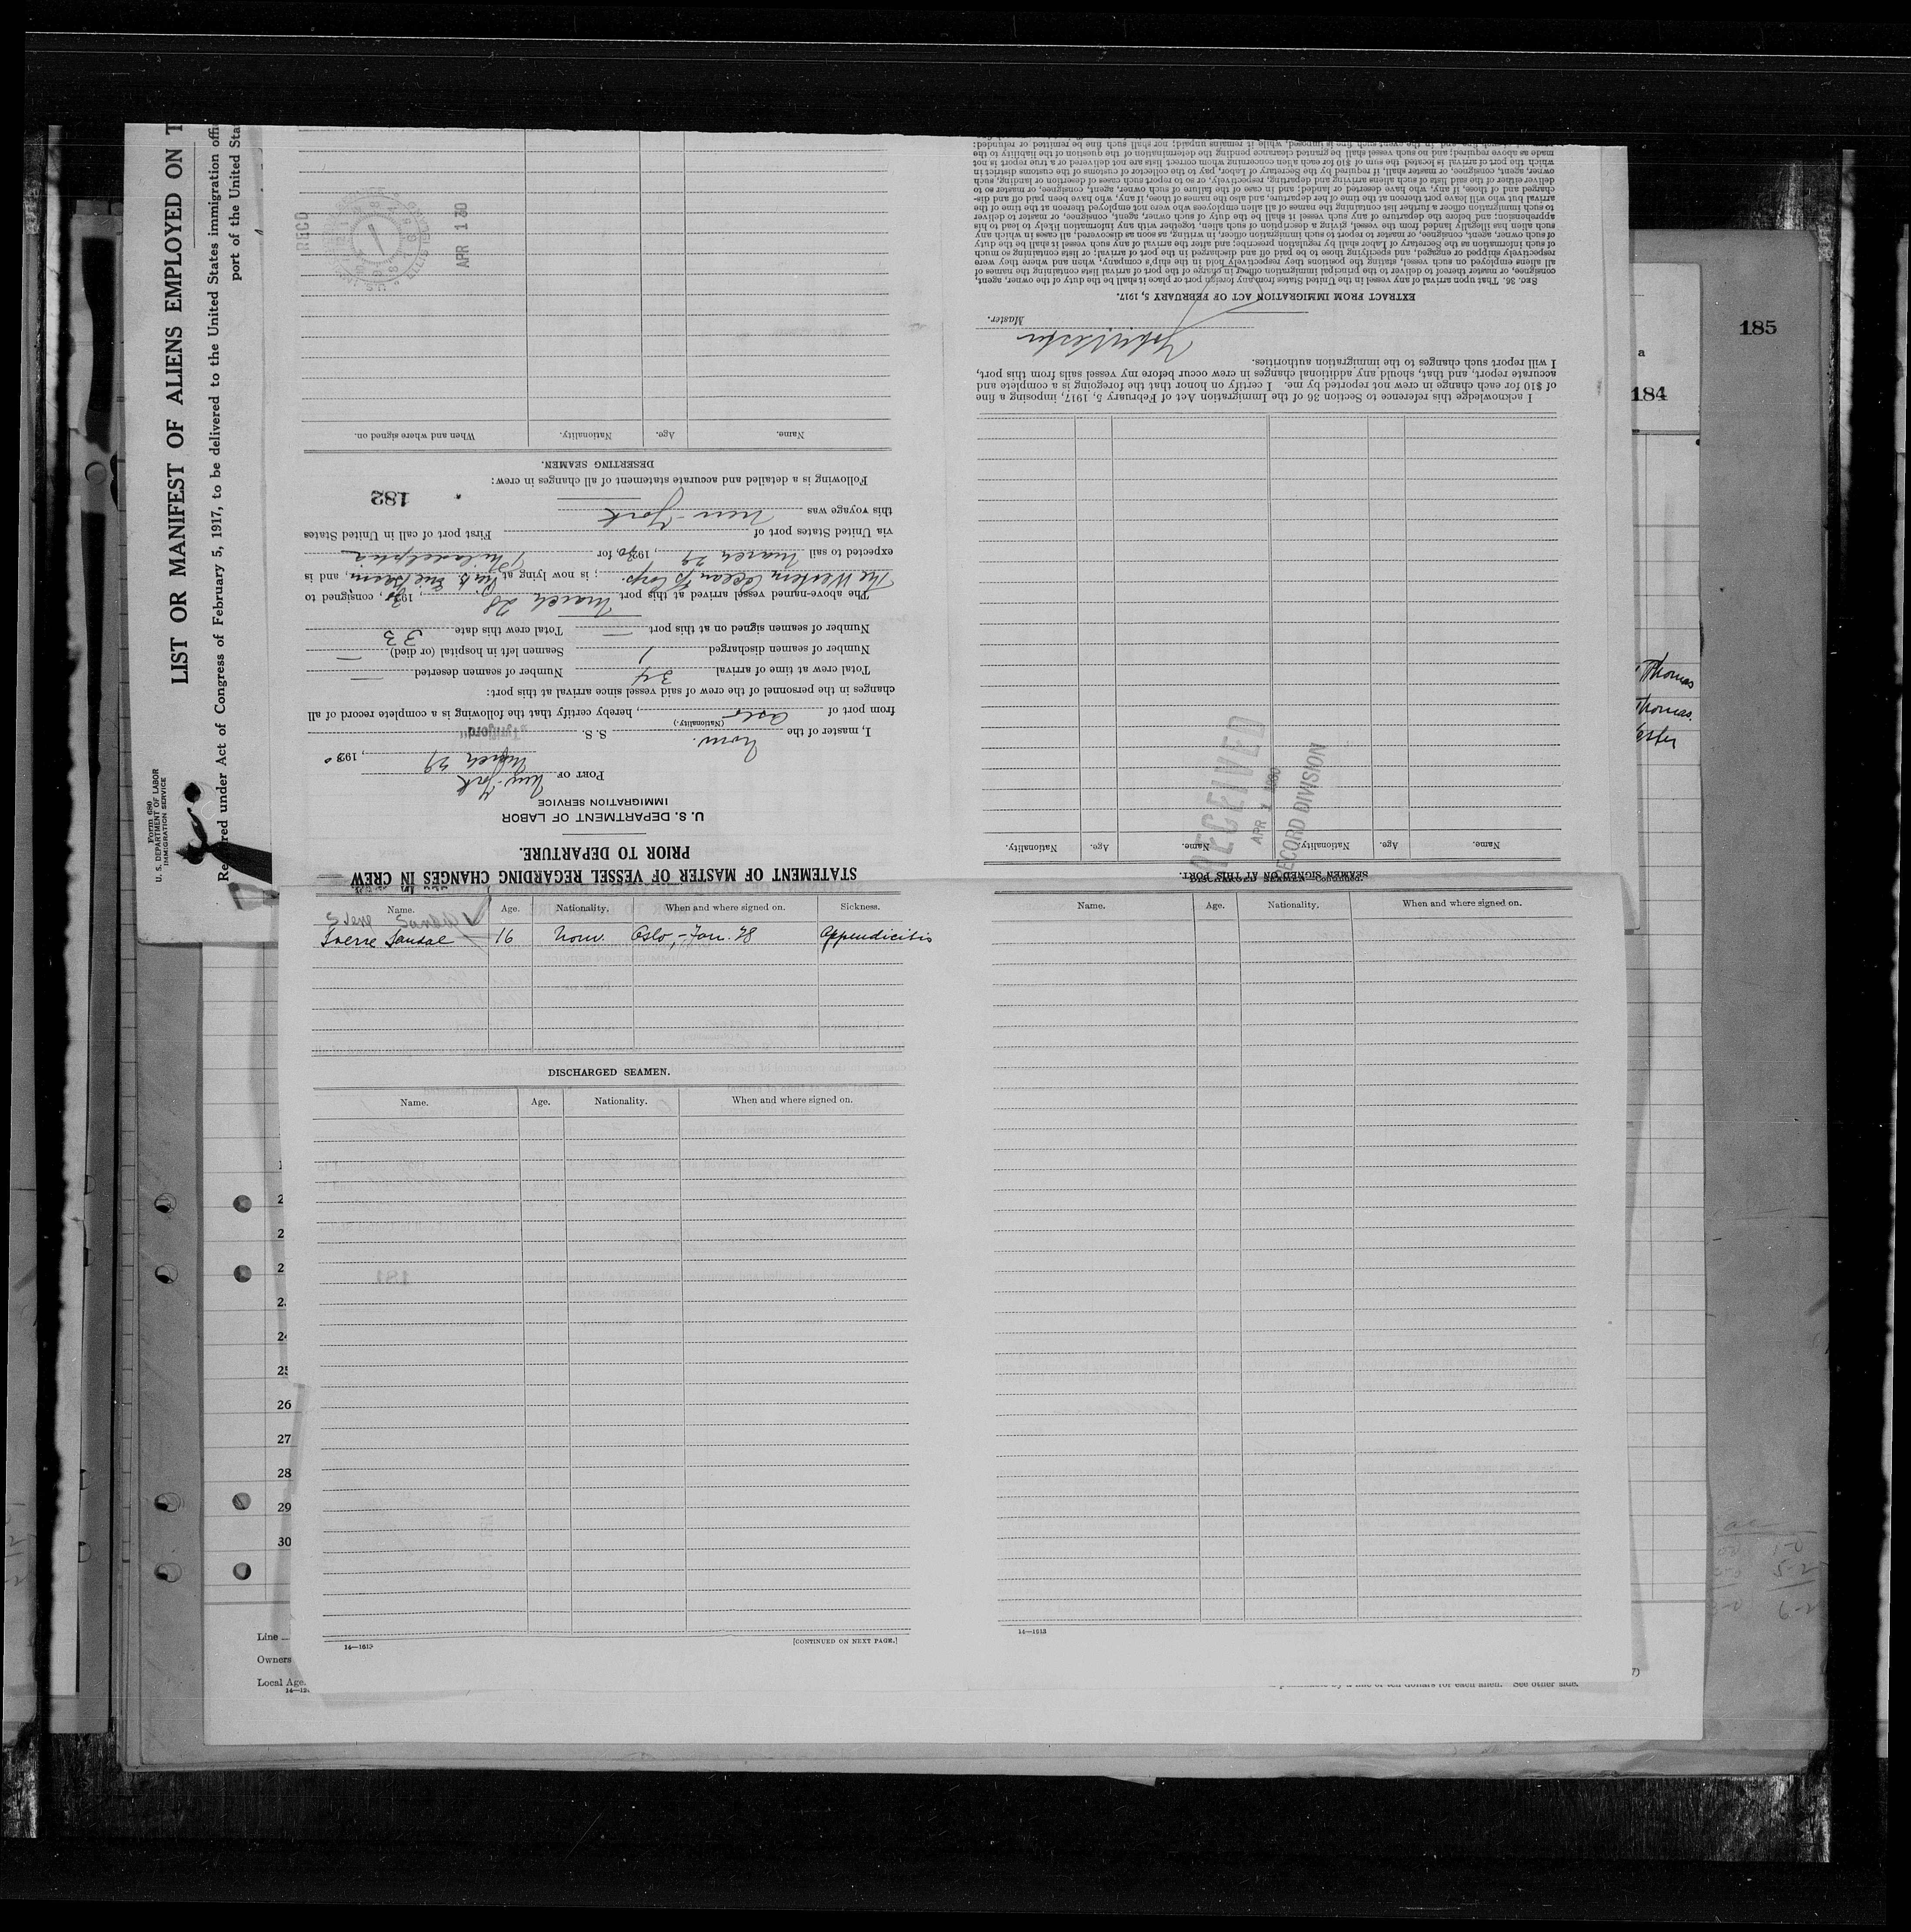 LIST OR MANIFEST OF ALIENS EMPLOYED ON T
under Act of Congress of February 5, 1917, to be delivered to the United States immigration offi
port of the United Sta
Form 680
U. S. DEPARTMENT OF LABOR
IMMIGRATION SERVICE
STATEMENT OF MASTER OF VESSEL REGARDING CHANGES IN CREW
PRIOR TO DEPARTURE.
U. S. DEPARTMENT OF LABOR
IMMIGRATION SERVICE
PORT OF New-York
March 29, 1930
I, master of the Norw. S. S. "Tyrifjord"
(Nationality.)
from port of Oslo, hereby certify that the following is a complete record of all
changes in the personnel of the crew of said vessel since arrival at this port:
Total crew at time of arrival 34 Number of seamen deserted —
Number of seamen discharged 1 Seamen left in hospital (or died) —
Number of seamen signed on at this port — Total crew this date 33
The above-named vessel arrived at this port March 28, 1930, consigned to
The Western Ocean SS Corp.; is now lying at Erie Basin, and is
expected to sail March 29, 1930, for Philadelphia
via United States port of First port of call in United States
this voyage was New-York
182
Following is a detailed and accurate statement of all changes in crew:
DESERTING SEAMEN.
Name. Age. Nationality. When and where signed on.
REC'D
APR 1 30
SEAMEN SIGNED ON AT THIS PORT.
Name. Age. Nationality. Name. Age. Nationality.
RECEIVED
APR 1 1930
RECORD DIVISION
I acknowledge this reference to Section 36 of the Immigration Act of February 5, 1917, imposing a fine
of $10 for each change in crew not reported by me. I certify on honor that the foregoing is a complete and
accurate report, and that, should any additional changes in crew occur before my vessel sails from this port,
I will report such changes to the immigration authorities.
Master.
EXTRACT FROM IMMIGRATION ACT OF FEBRUARY 5, 1917.
SEC. 36. That upon arrival of any vessel in the United States from any foreign port or place it shall be the duty of the owner, agent,
consignee, or master thereof to deliver to the principal immigration officer in charge of the port of arrival lists containing the names of
all aliens employed on such vessel, stating the positions they respectively hold in the ship's company, when and where they were
respectively shipped or engaged, and specifying those to be paid off and discharged in the port of arrival; or lists containing so much
of such information as the Secretary of Labor shall by regulation prescribe; and after the arrival of any such vessel it shall be the duty
of such owner, agent, consignee, or master to report to such immigration officer, in writing, as soon as discovered, all cases in which any
such alien has illegally landed from the vessel, giving a description of such alien, together with any information likely to lead to his
apprehension; and before the departure of any such vessel it shall be the duty of such owner, agent, consignee, or master to deliver
to such immigration officer a further list containing the names of all alien employees who were not employed thereon at the time of the
arrival but who will leave port thereon at the time of her departure, and also the names of those, if any, who have been paid off and dis-
charged and of those, if any, who have deserted or landed; and in case of the failure of such owner, agent, consignee, or master so to
deliver either of the said lists of such aliens arriving and departing, respectively, or so to report such cases of desertion or landing, such
owner, agent, consignee, or master shall, if required by the Secretary of Labor, pay to the collector of customs of the customs district in
which the port of arrival is located the sum of $10 for each alien concerning whom correct lists are not delivered or a true report is not
made as above required; and no such vessel shall be granted clearance pending the determination of the question of the liability to the
Name. Age. Nationality. When and where signed on. Sickness.
Sverre Sandal 16 Norw. Oslo, - Jan. 28 Appendicitis
DISCHARGED SEAMEN.
Name. Age. Nationality. When and where signed on.
14—1613
[CONTINUED ON NEXT PAGE.]
DISCHARGED SEAMEN—Continued.
Name. Age. Nationality. When and where signed on.
14—1613
185
184
Thomas
Thomas.
24
25
26
27
28
29
30
Line
Owners
Local Age.
See other side.